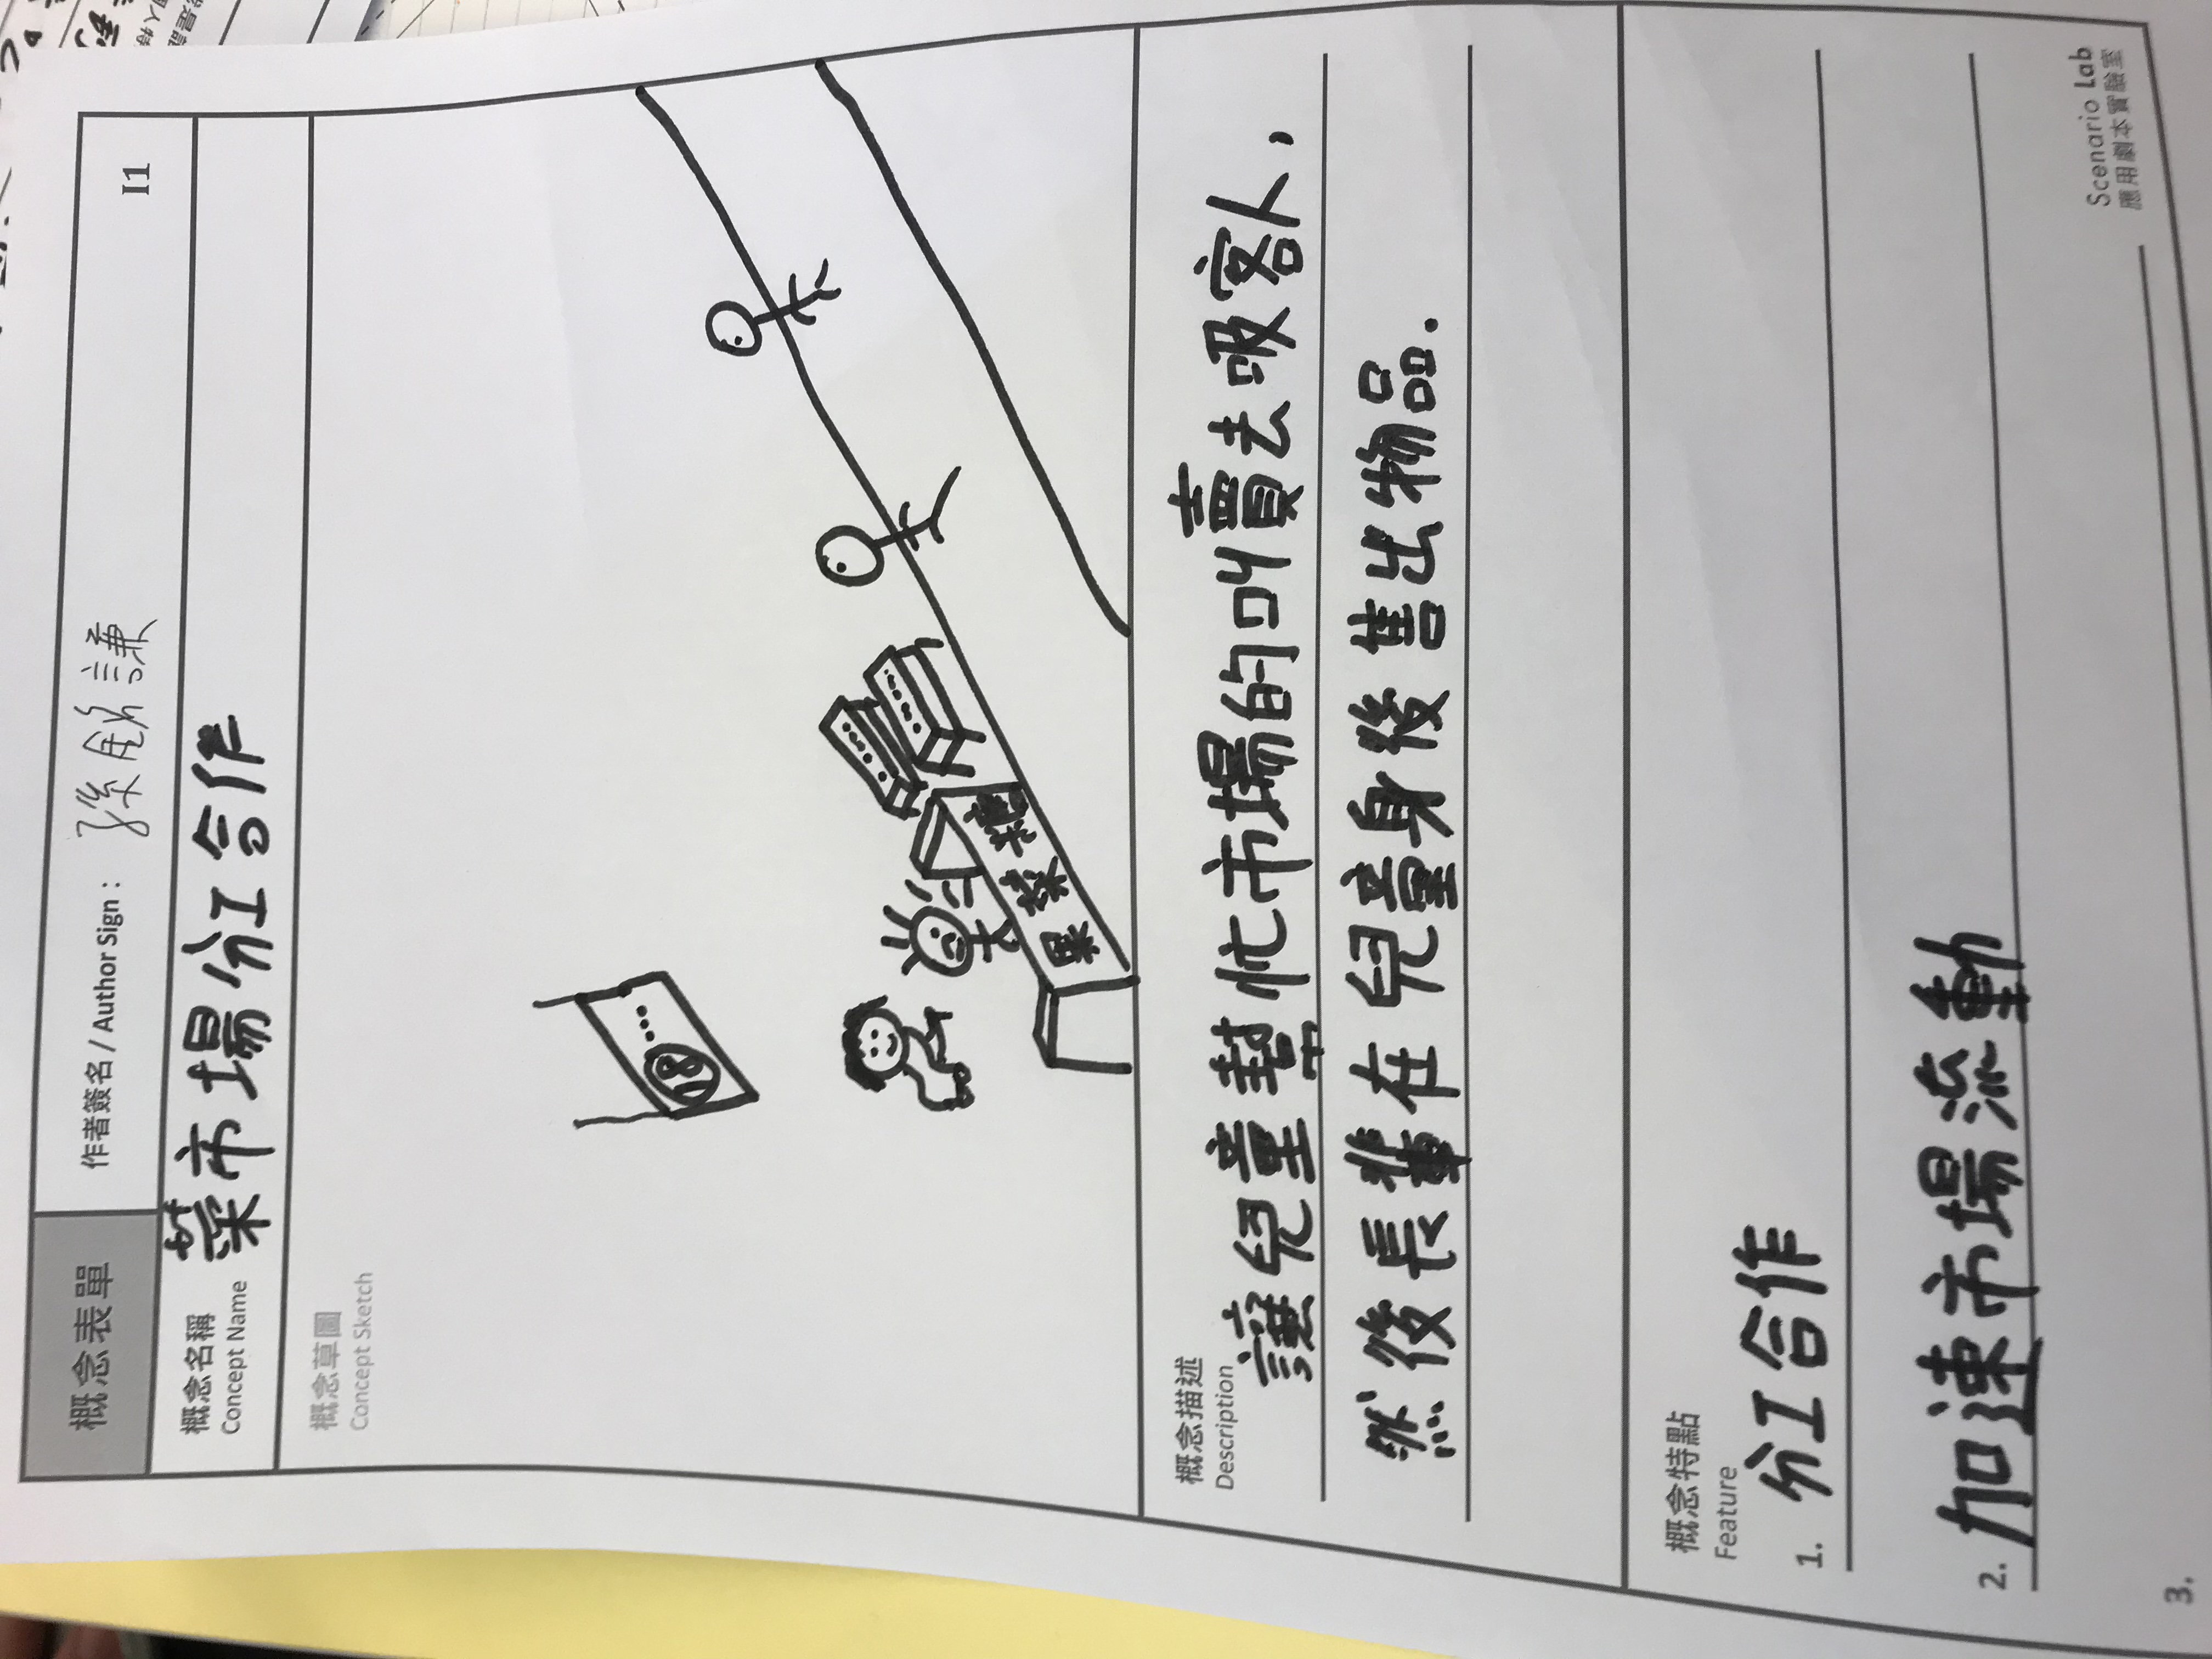 概念表單
作者簽名 / Author Sign：孫銘謙
I1
概念名稱
Concept Name
菜市場分工合作
概念草圖
Concept Sketch
18
果菜糖
概念描述
Description
讓兒童幫忙市場的叫賣去吸客人，
然後長輩在兒童身後售出物品.
概念特點
Feature
1. 分工合作
2. 加速市場流動
3.
Scenario Lab
應用劇本實驗室